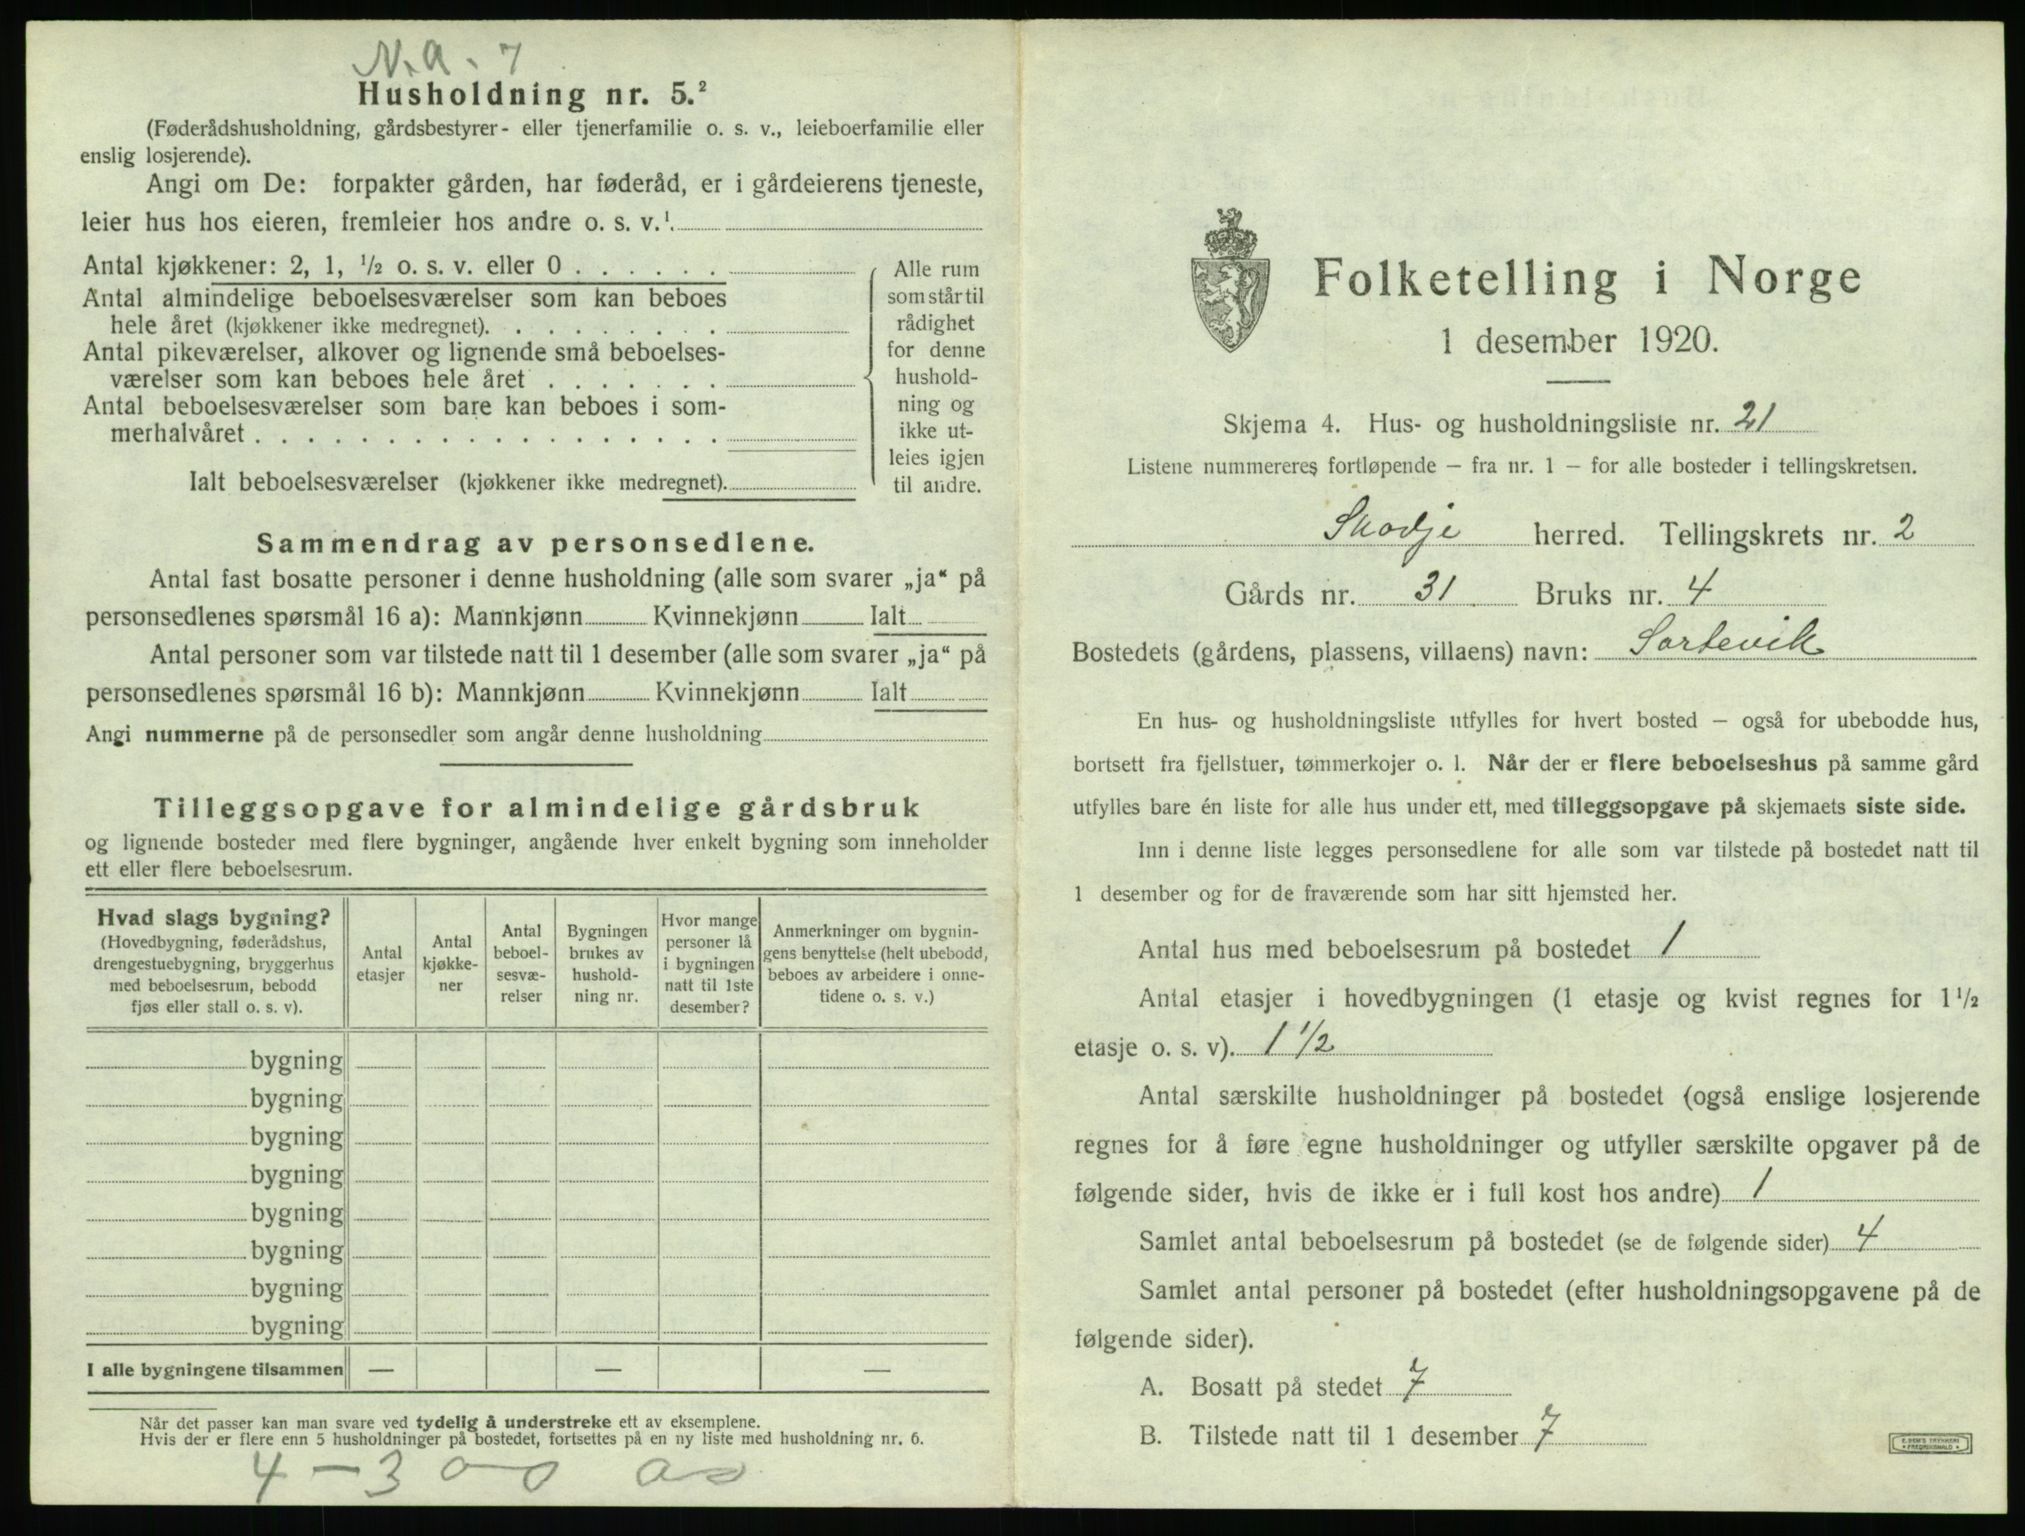 N.A. 7
Husholdning nr. 5.²
(Føderådshusholdning, gårdsbestyrer- eller tjenerfamilie o. s. v., leieboerfamilie eller
enslig losjerende).
Angi om De: forpakter gården, har føderåd, er i gårdeierens tjeneste,
leier hus hos eieren, fremleier hos andre o. s. v.¹
Antal kjøkkener: 2, 1, ½ o. s. v. eller 0 . . . . . .
Antal almindelige beboelsesværelser som kan beboes
hele året (kjøkkener ikke medregnet). . . . . . . . .
Antal pikeværelser, alkover og lignende små beboelses-
værelser som kan beboes hele året . . . . . . .
Antal beboelsesværelser som bare kan beboes i som-
merhalvåret . . . . . . . . . . . . . . . . . .
Ialt beboelsesværelser (kjøkkener ikke medregnet).
Alle rum
som står til
rådighet
for denne
hushold-
ning og
ikke ut-
leies igjen
til andre.
Sammendrag av personsedlene.
Antal fast bosatte personer i denne husholdning (alle som svarer „ja“ på
personsedlenes spørsmål 16 a): Mannkjønn Kvinnekjønn Ialt
Antal personer som var tilstede natt til 1 desember (alle som svarer „ja“ på
personsedlenes spørsmål 16 b): Mannkjønn Kvinnekjønn Ialt
Angi nummerne på de personsedler som angår denne husholdning
Tilleggsopgave for almindelige gårdsbruk
og lignende bosteder med flere bygninger, angående hver enkelt bygning som inneholder
ett eller flere beboelsesrum.
Hvad slags bygning?
(Hovedbygning, føderådshus,
drengestuebygning, bryggerhus
med beboelsesrum, bebodd
fjøs eller stall o. s. v).
Antal
etasjer
Antal
kjøkke-
ner
Antal
beboel-
sesvæ-
relser
Bygningen
brukes av
hushold-
ning nr.
Hvor mange
personer lå
i bygningen
natt til 1ste
desember?
Anmerkninger om bygnin-
gens benyttelse (helt ubebodd,
beboes av arbeidere i onne-
tidene o. s. v.)
bygning
bygning
bygning
bygning
bygning
bygning
bygning
bygning
I alle bygningene tilsammen — — —
Når det passer kan man svare ved tydelig å understreke ett av eksemplene.
Hvis der er flere enn 5 husholdninger på bostedet, fortsettes på en ny liste med husholdning nr. 6.
4 – 3
Folketelling i Norge
1 desember 1920.
Skjema 4. Hus- og husholdningsliste nr. 21
Listene nummereres fortløpende – fra nr. 1 – for alle bosteder i tellingskretsen.
Skodje herred. Tellingskrets nr. 2
Gårds nr. 31 Bruks nr. 4
Bostedets (gårdens, plassens, villaens) navn: Sortevik
En hus- og husholdningsliste utfylles for hvert bosted – også for ubebodde hus,
bortsett fra fjellstuer, tømmerkojer o. l. Når der er flere beboelseshus på samme gård
utfylles bare én liste for alle hus under ett, med tilleggsopgave på skjemaets siste side.
Inn i denne liste legges personsedlene for alle som var tilstede på bostedet natt til
1 desember og for de fraværende som har sitt hjemsted her.
Antal hus med beboelsesrum på bostedet 1
Antal etasjer i hovedbygningen (1 etasje og kvist regnes for 1½
etasje o. s. v). 1 1/2
Antal særskilte husholdninger på bostedet (også enslige losjerende
regnes for å føre egne husholdninger og utfyller særskilte opgaver på de
følgende sider, hvis de ikke er i full kost hos andre) 1
Samlet antal beboelsesrum på bostedet (se de følgende sider) 4
Samlet antal personer på bostedet (efter husholdningsopgavene på de
følgende sider).
A. Bosatt på stedet 7
B. Tilstede natt til 1 desember 7